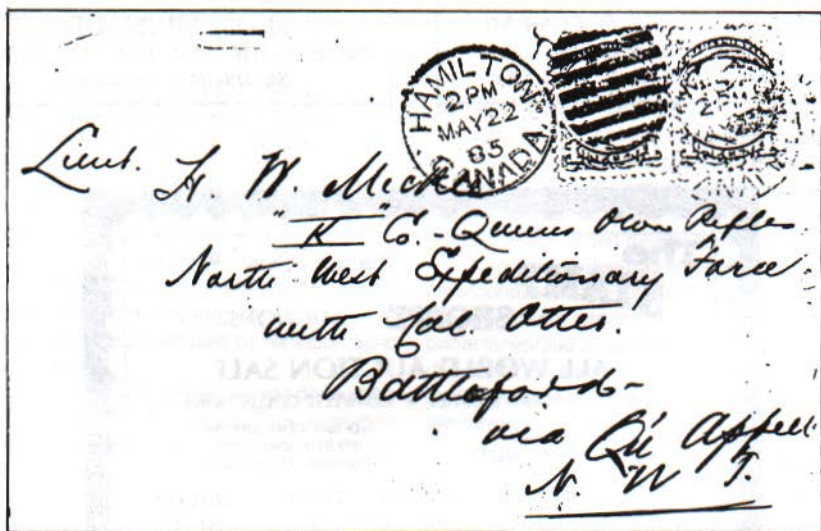 HAMILTON
2 PM
MAY 22
85
CANADA
Lieut. H W.
"K" Co. - Queens Own Rifles
North West Expeditionary Force
with Col. Otter.
Battleford -
via Qu' Appelle
N. W T.
ALL WORLD AUCTION SALE